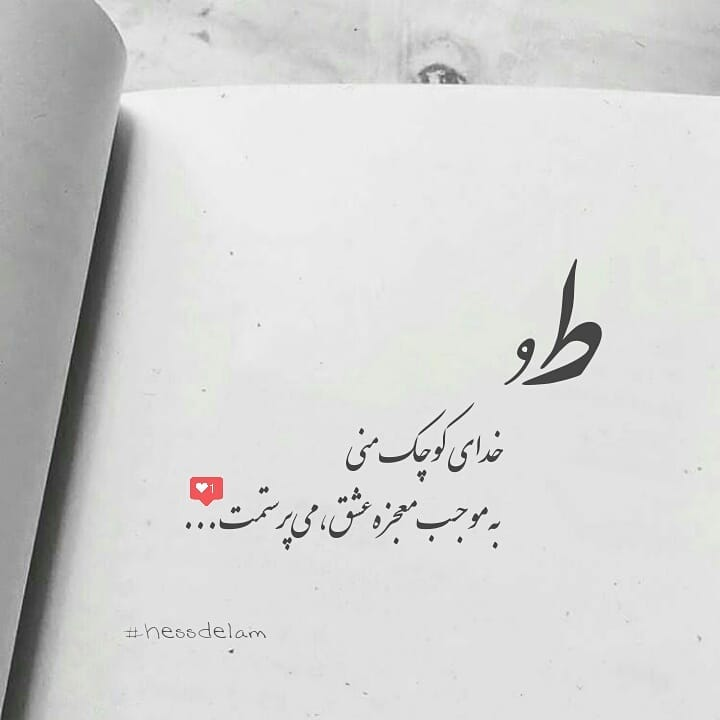 طُ
خدای کوچک منی
به موجب معجزه عشق، می‌پرستمت...
1
#hessdelam